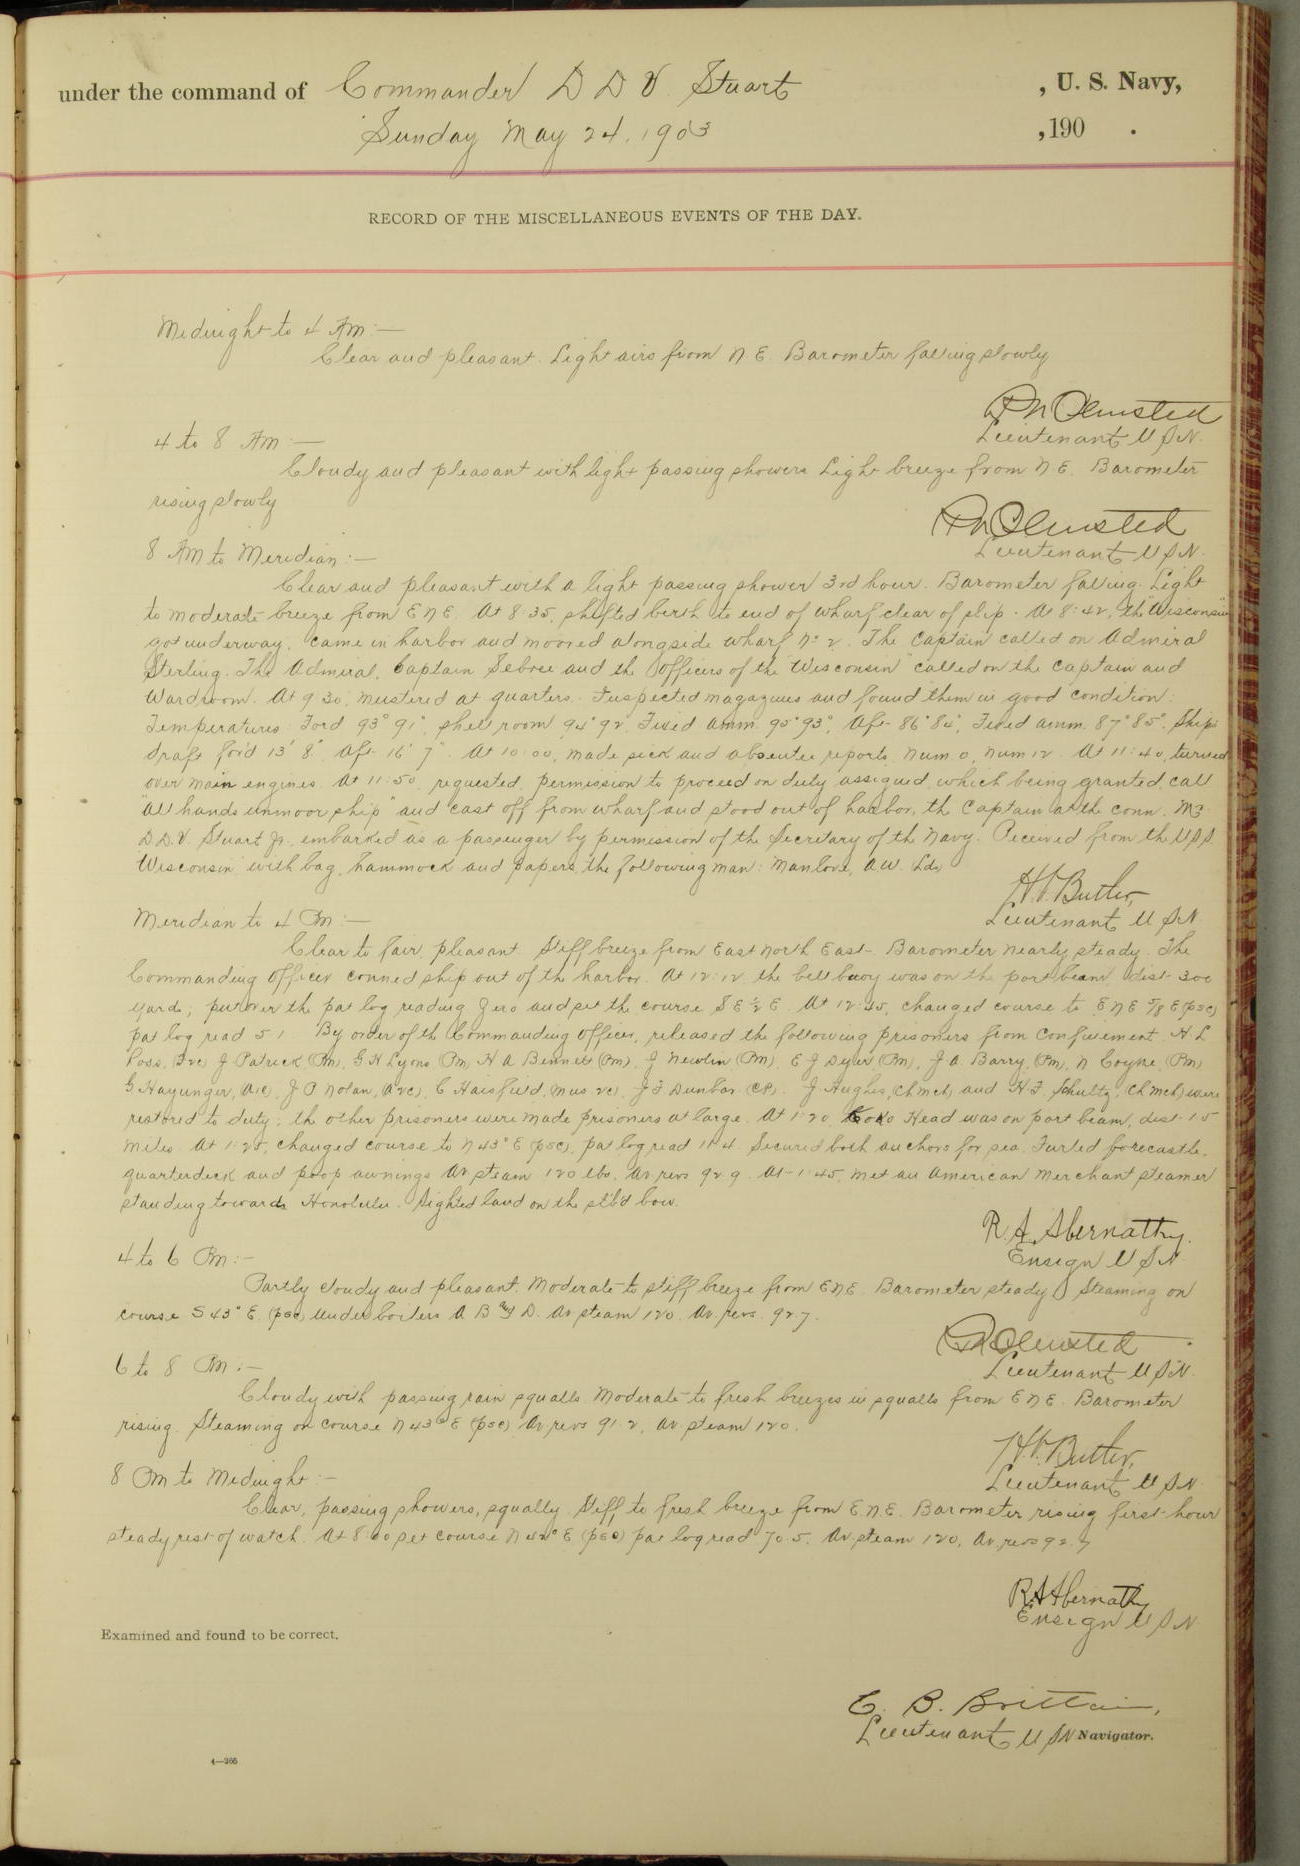 under the command of Commander D D V Stuart , U. S. Navy,
Sunday May 24, 1903 , 190 .
RECORD OF THE MISCELLANEOUS EVENTS OF THE DAY.
Midnight to 4 Am:—
Clear and pleasant. Light airs from N E. Barometer falling slowly
Olmsted
Lieutenant U S N.
4 to 8 Am:—
Cloudy and pleasant with light passing showers Light breeze from N E. Barometer
rising slowly
Olmsted
Lieutenant U S N.
8 AM to Meridian:—
Clear and pleasant with a light passing shower 3rd hour. Barometer falling. Light
to moderate breeze from E N E. At 8:35, shifted berth to end of wharf clear of slip. At 8:42, the "Wisconsin"
got underway, came in harbor and moored alongside wharf No 2. The Captain called on Admiral
Sterling. The Admiral, Captain Sebree and the Officers of the "Wisconsin" called on the Captain and
Wardroom. At 9:30, mustered at quarters. Inspected magazines and found them in good condition:
Temperatures For'd 93° 91°, shell room 94° 92°, Fixed amm. 95° 93°, Aft 86° 85°, Fixed amm. 87° 85°. Ship's
draft for'd 13' 8", aft 16' 7". At 10:00, made sick and absentee reports, Num 0, Num 12. At 11:40, turned
over main engines. At 11:50, requested permission to proceed on duty assigned, which being granted, call
"all hands unmoor ship" and cast off from wharf and stood out of harbor, the Captain at the conn. Mr
D. D. V. Stuart Jr. embarked as a passenger by permission of the Secretary of the Navy. Received from the U.S.S.
Wisconsin with bag, hammock and papers, the following man: Manlove, A W. Lds
H. V. Butler,
Lieutenant U S N
Meridian to 4 Pm:—
Clear to fair, pleasant. Stiff breeze from East North East. Barometer nearly steady. The
Commanding Officer conned ship out of the harbor. At 12:12, the bell buoy was on the port beam, dist 300
yards; put over the pat log reading Zero and set the course S E ½ E. At 12:45, changed course to E N E 7/8 E (psc)
pat log read 5.1 By order of the Commanding Officer, released the following prisoners from confinement. H L
J Patrick (Pm), G H Lyons (Pm, H A Bennett (Pm), J Newlin (Pm), E J Dyer (Pm), J A Barry, (Pm), N Coyne (Pm)
G Hayunger, J P Nolan, C Haisfield, (mus 2c), J F Dunbar (CP). J Hughes, (Ch mch) and H F Schultz, (Ch mch) were
restored to duty; the other prisoners were made prisoners at large. At 1:20, Koko Head was on port beam, dist 1.5
miles. At 1:25, changed course to N 43° E (psc), pat log read 11.4. Secured both anchors for sea. Furled forecastle,
quarterdeck and poop awnings Av steam 120 lbs. Av revs 92.9. At 1:45, met an American merchant steamer
standing towards Honolulu. Sighted land on the stb'd bow.
R. A. Abernathy.
Ensign U S N
4 to 6 Pm:—
Partly cloudy and pleasant. Moderate to stiff breeze from E N E. Barometer steady. Steaming on
course S 43° E. (psc) under boilers A B and D. Av steam 120. Av. revs. 92.7.
Olmsted
Lieutenant U S N.
6 to 8 Pm:—
Cloudy with passing rain squalls. Moderate to fresh breezes in squalls from E N E. Barometer
rising. Steaming on course N 43° E (psc). Av. revs 91.2, Av. steam 120.
H. V. Butler,
Lieutenant U S N
8 Pm to Midnight:—
Clear, passing showers, squally. Stiff to fresh breeze from E. N. E. Barometer rising first hour
steady rest of watch. At 8:00 set course N 42° E (psc) pat log read 70.5. Av. steam 120, Av. revs 92.7
R A Abernathy
Ensign U S N
Examined and found to be correct.
C. B. Brittain,
Lieutenant U S N Navigator.
4—366